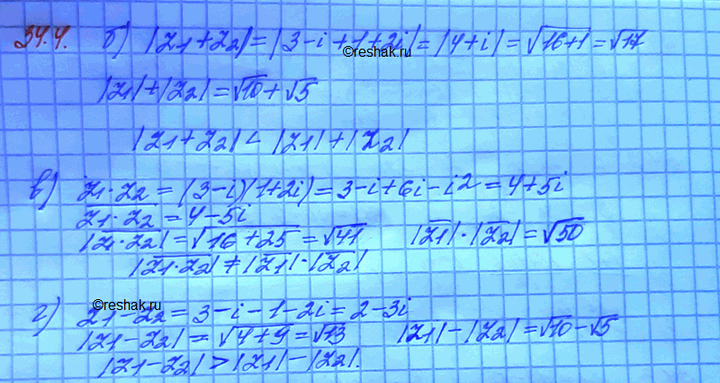 34.4. б) |z₁+z₂|=|3-i+1+2i|=|4+i|=√16+1=√17
©reshak.ru
|z₁|+|z₂|=√10+√5
|z₁+z₂|<|z₁|+|z₂|
в) z₁·z₂=(3-i)(1+2i)=3-i+6i-i²=4+5i
z̅₁̅·̅z̅₂̅=4-5i
|z̅₁̅·̅z̅₂̅|=√16+25=√41 |z̅₁|·|z̅₂|=√50
|z̅₁̅·̅z̅₂̅|≠|z̅₁|·|z̅₂|
©reshak.ru
г) z₁-z₂=3-i-1-2i=2-3i
|z₁-z₂|=√4+9=√13 |z₁|-|z₂|=√10-√5
|z₁-z₂|>|z₁|-|z₂|.